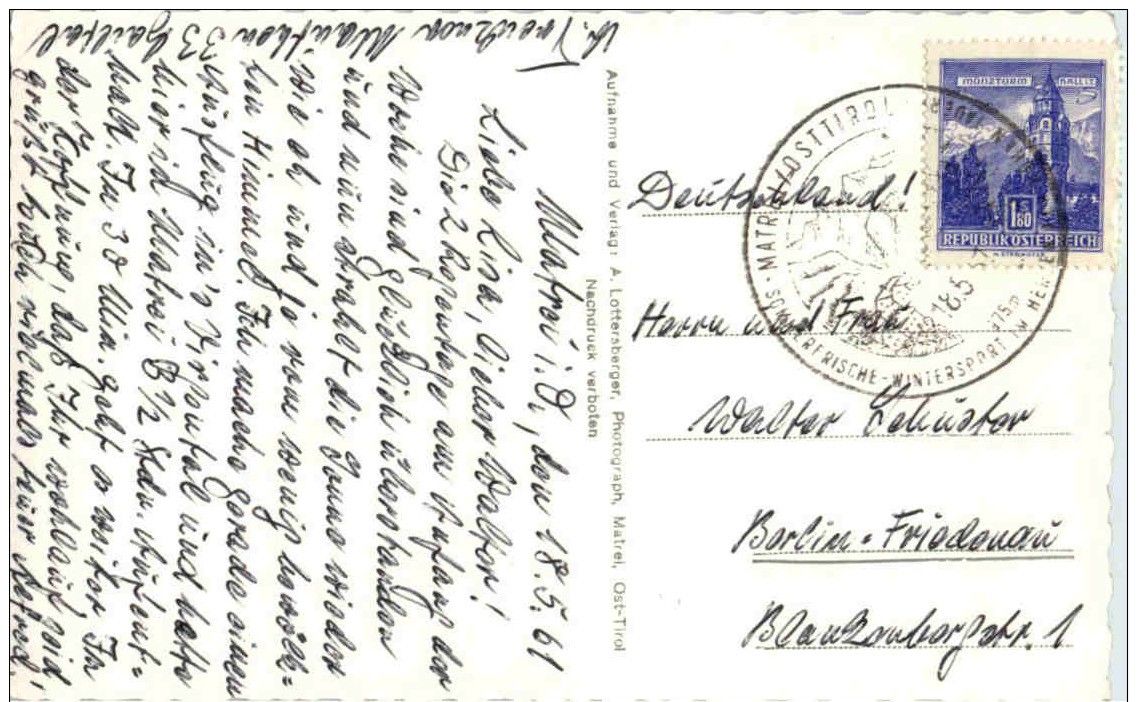 Matrei i. O., den 18.5.61
Liebe Lisa, lieber Walter!
Die 2 Regentage am Anfang der
Woche sind glücklich überstanden
und nun strahlt die Sonne wieder
wie eh und je vom wenig bewölk=
ten Himmel. Ich mache gerade einen
Ausflug in's Virgental und hatte
hier in Matrei 3 ½ Stdn. Aufent=
halt. In 30 Min. geht es weiter. In
der Hoffnung, daß Ihr wohlauf seid
grüßt Euch vielmals Euer Alfred.
Mauthen 33 Gailtal
Aufnahme und Verlag: A. Lottersberger, Photograph, Matrei, Ost-Tirol
Nachdruck verboten
MÜNZTURM HALL i.T.
S 1.80
REPUBLIK ÖSTERREICH
MATREI / OSTTIROL
SOMMERFRISCHE - WINTERSPORT
18.5
Deutschland!
Herrn und Frau
Walter Schuster
Berlin-Friedenau
Blankenbergstr. 1